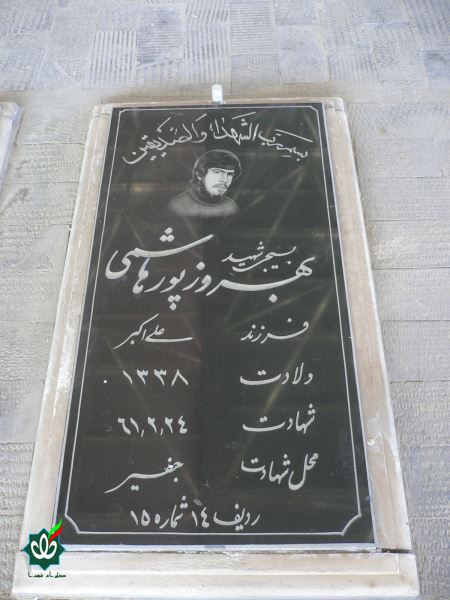 بسم رب الشهداء والصدیقین
بسیجی شهید
بهروز پورهاشمی
فرزند علی اکبر
ولادت ۱۳۳۸
شهادت ۶۱٫۲٫۲۴
محل شهادت جفیر
ردیف ۱۴ شماره ۱۵